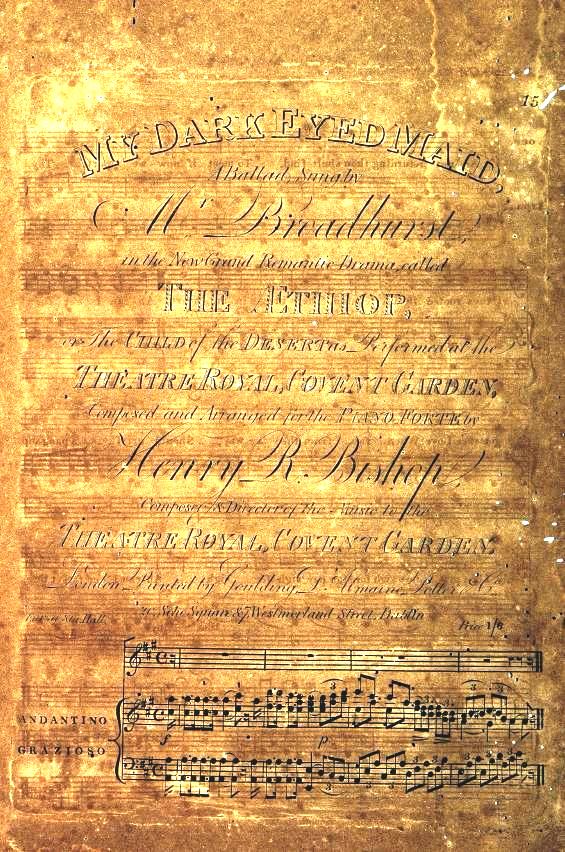 15
MY DARK EYED MAID,
A Ballad, Sung by
Mr. Broadhurst,
in the New Grand Romantic Drama, called
THE ÆTHIOP,
or The CHILD of the DESERT as Performed at the
THEATRE ROYAL, COVENT GARDEN,
Composed and Arranged for the PIANO FORTE by
Henry R. Bishop,
Composer & Director of the Music to the
THEATRE ROYAL, COVENT GARDEN.
London, Printed by Goulding, D'Almaine, Potter & Co.
20, Soho Square & 7, Westmorland Street, Dublin
Price 1/6
ANDANTINO
GRAZIOSO
f
p
3 3 3 3